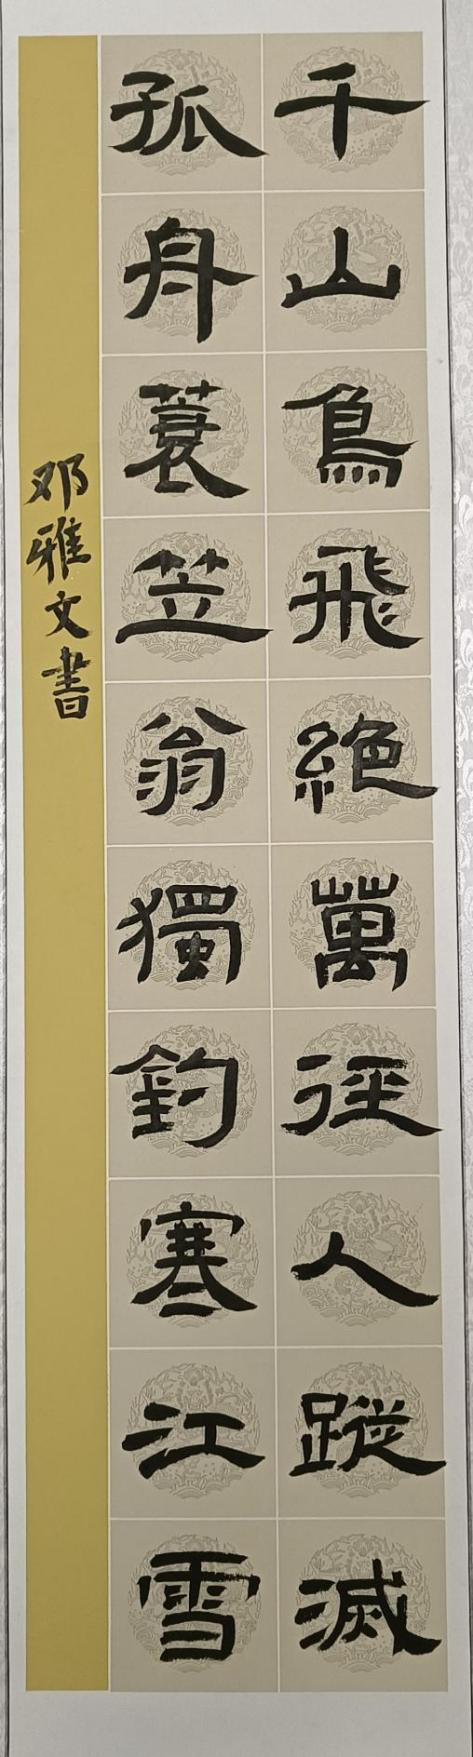 千山鳥飛絶萬徑人蹤滅
孤舟蓑笠翁獨釣寒江雪
邓雅文書